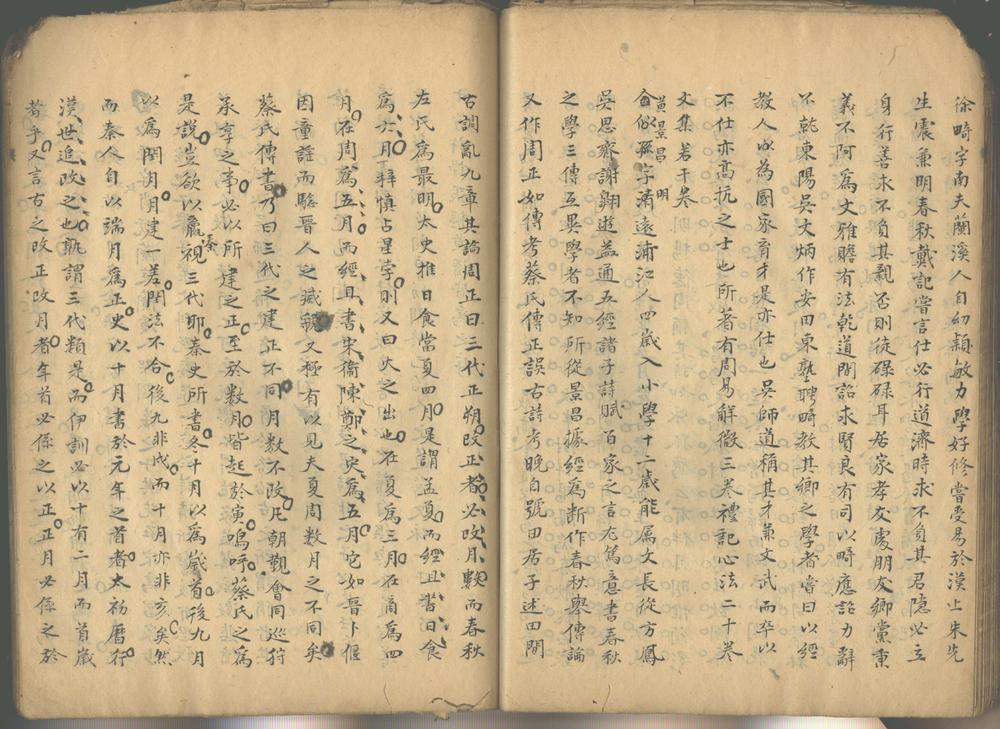 徐畸字南夫蘭溪人自幼穎敏力學好修嘗受易於漢上朱先
生震兼明春秋戴記嘗言仕必行道濟時求不負其君隱必立
身行善求不負其親否則徒碌碌耳居家孝友處朋友鄉黨秉
義不阿為文雅贍有法乾道間詔求賢良有司以畸應詔力辭
不就東陽吳文炳作安田東塾聘畸教其鄉之學者嘗曰以經
教人以為國家育才是亦仕也吳師道稱其才兼文武而卒以
不仕亦高抗之士也所著有周易解微三卷禮記心法二十卷
文集若干卷
黃景昌字明遠浦江人四歲入小學十二歲能屬文長從方鳳
吳思齋謝翱遊益通五經諸子詩賦百家之言尤篤意書春秋
之學三傳互異學者不知所從景昌據經為斷作春秋舉傳論
又作周正如傳考蔡氏傳正誤古詩考晚自號田居子述田間
古調亂九章其論周正曰三代正朔改正者必改月數而春秋
左氏為最明太史推日食當夏四月是謂孟夏而經且書日食
為六月梓慎占星孛則又曰火之出也在夏為三月在商為四
月在周為五月而經且書宋衛陳鄭之災為五月它如晉卜偃
因童謠而驗晉人之滅虢又極有以見夫夏周數月之不同矣
蔡氏傳書乃曰三代之建正不同月數不改凡朝覲會同巡狩
承享之事必以所建之正至於數月皆起於寅嗚呼蔡氏之為
是說豈欲以秦視三代耶秦史所書冬十月以為歲首後九月
以為閏月月建一差閏法不合後九非戌而十月亦非亥矣然
而秦人自以端月為正史以十月書於元年之首者太初曆行
漢世追改之也孰謂三代類是而伊訓必以十有二月而首歲
首乎又言古之改正改月者年首必係之以正正月必係之於